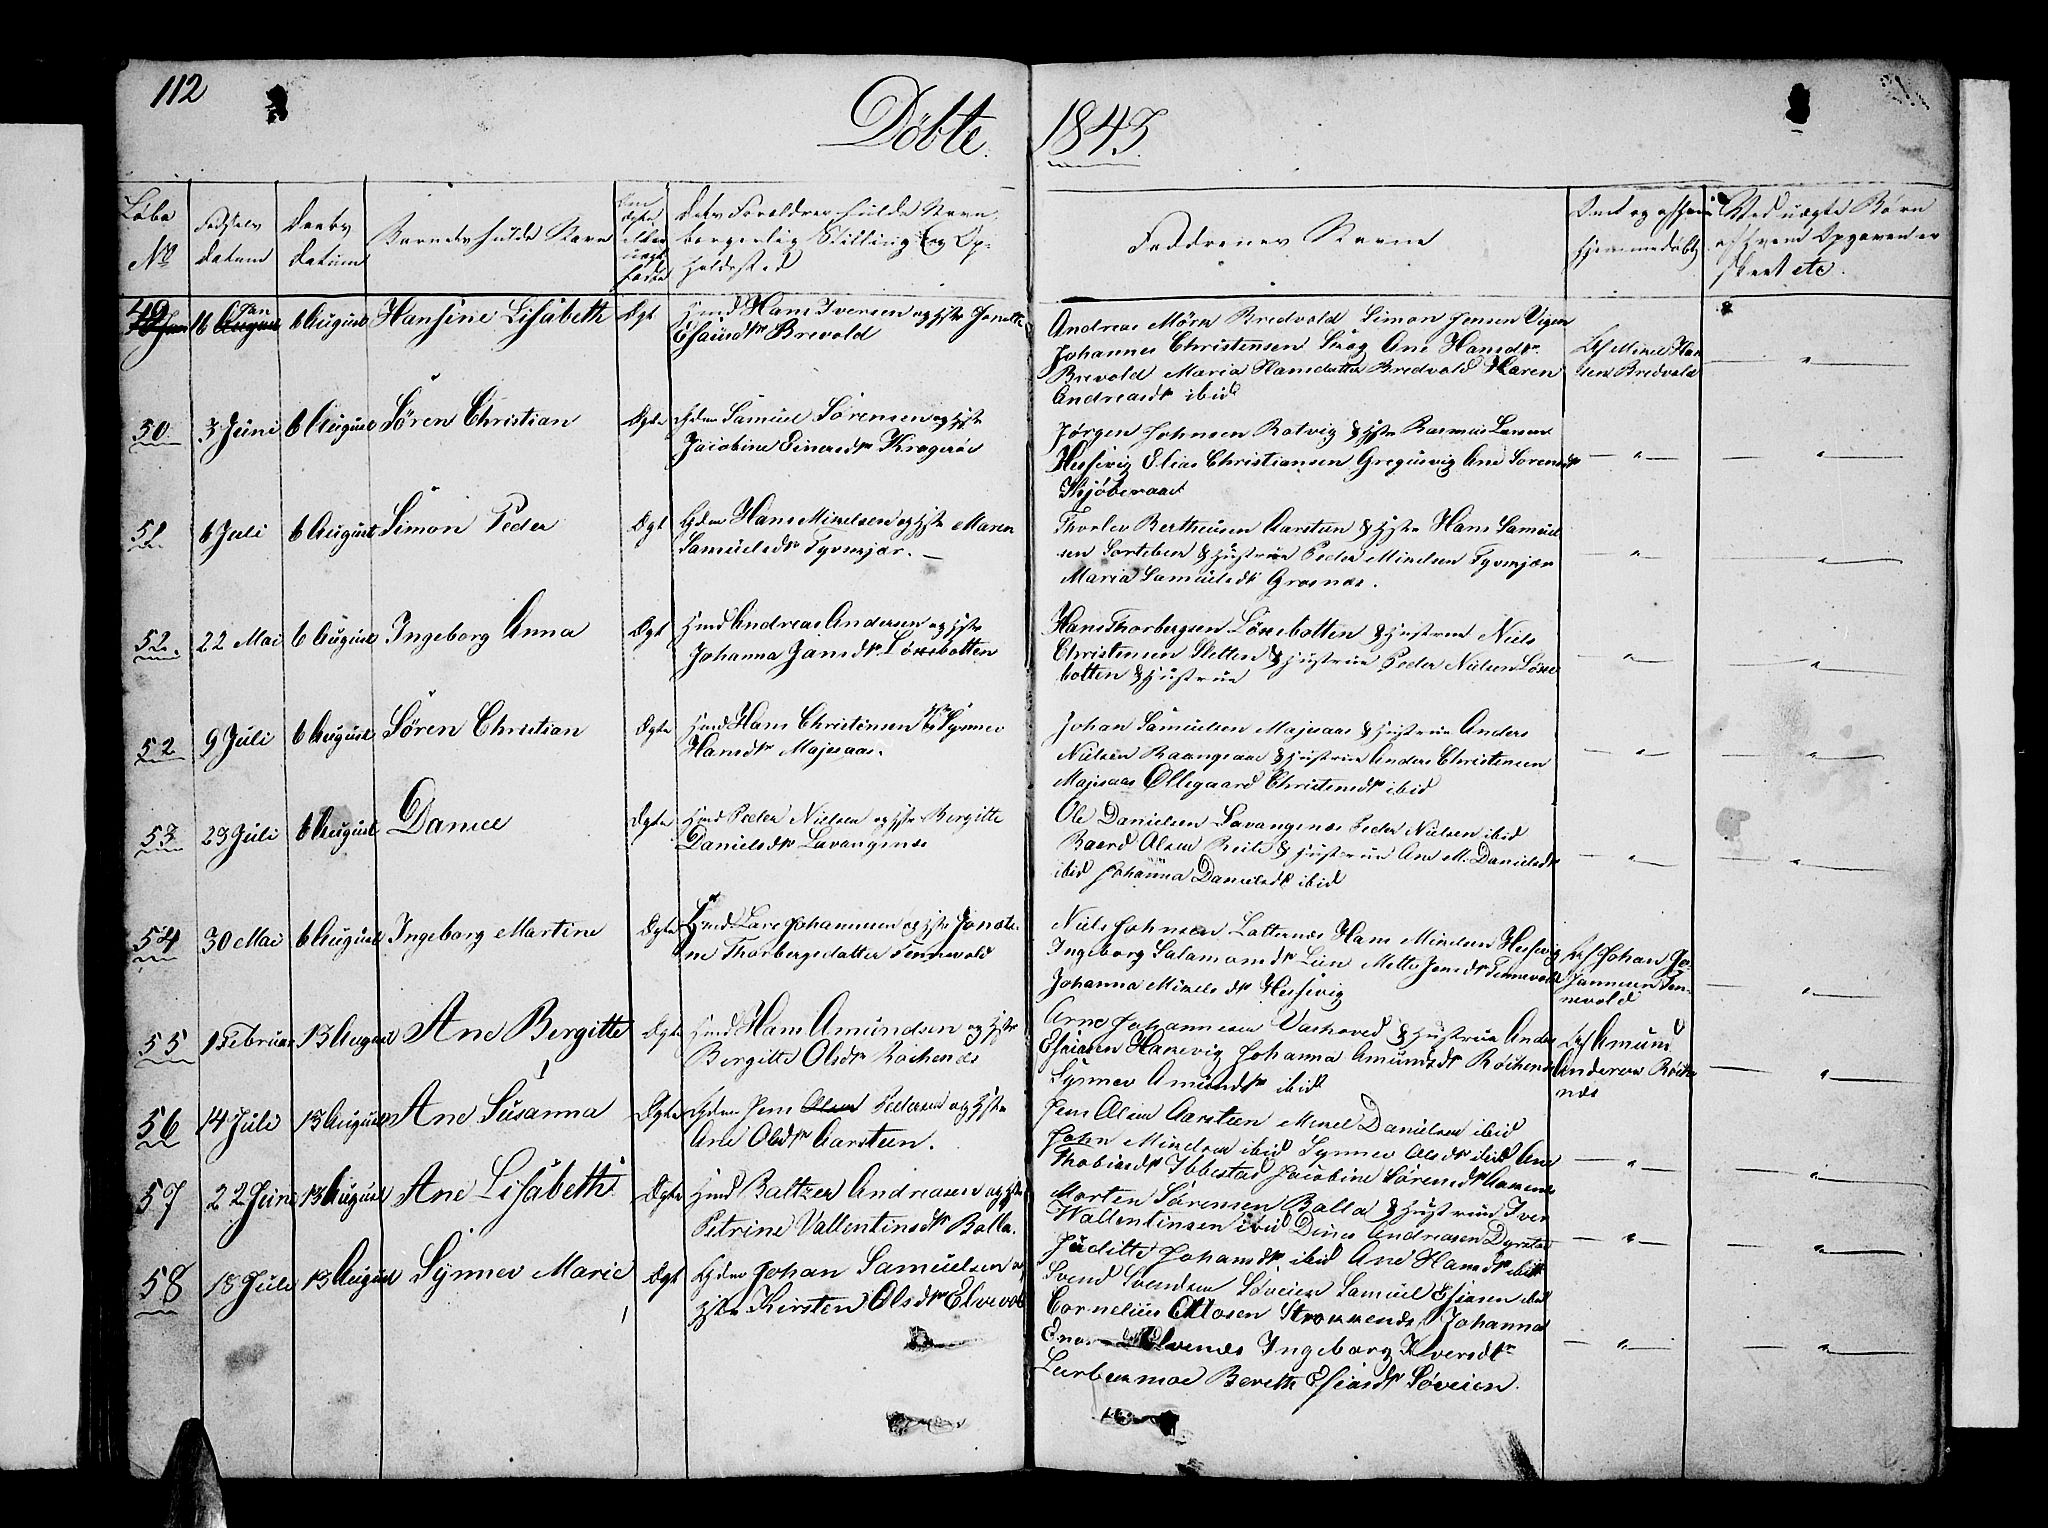 112
Döbte 1843
Løbe No
Fødsels datum
Daabs datum
Barnets fulde Navn
Om Ægte eller uægt fødte
Dets Forældres fulde Navn, borgerlig Stilling og Opholdssted
Faddernes Navne
Om og af hvem hjemmedøbt
Ved uægte Børn af hvem Opgaven er skeet etc.
49 16 Jan 6 August Hansine Lisabeth Ægt Huusmd Hans Iversen og Hst Jonette
Esaiasdtr Brevold
Andreas Mörk Bredvold Simon Jensen Vigen
Johannes Christensen Skog Ane Hansdtr
Brevold Maria Hansdatter Bredvold Maren
Andreasdtr ibid
Af Mikel Han
sen Bredvold
50 3 Juni 6 August Sören Christian Ægte Gdm Samuel Sörensen og Hst
Jacobine Einersdtr Kragerøe
Jørgen Johnsen Rotvig & Hst Rasmus Larsen
Hessevig Elias Christiansen Gregusvig Ane Sorensdtr
Skjöberaas
51 6 Juli 6 August Simon Peder Ægt Gdm Hans Mikelsen og Hst Maren
Samuelsdtr Tyvnjær.
Thorlev Bertheusen Aarsteen & Hst Hans Samuel
sen Sorteber & Hustrue Peder Mikelsen Tyvnjær
Maria Samuelsdtr Grosnæs.
52. 22 Mai 6 August Ingeborg Anna Ægt Hmd Andreas Andersen og Hst
Johanna Jansdtr Lönsbotten
Hans Thorbergsen Lönsbotten & Hustrue Niels
Christensen Sletten & Hustrue Peder Nielsen Lönse
botten & Hustrue
52 9 Juli 6 August Sören Christian Ægte Hmd Hans Christensen & Hst Synnev
Hansdtr Majesaas.
Johan Samuelsen Majsaas & Hustrue Anders
Nielsen Kaangsaas & Hustrue Anders Christensen
Majesaas Ollegaard Christensdtr ibid
53 23 Juli 6 August Daniel Ægte Hmd Peder Nielsen og Hst Bergitte
Danielsdtr Lavangsnæs
Ole Danielsen Lavangsnæs Peder Nielsen ibid
Baard Olsen & Hustrue Ane M. Danielsdtr
ibid Johanna Danielsdtr ibid
54 30 Mai 6 August Ingeborg Martine Ægte Hmd Lars Johannesen og Hst Joneta
ne Thorbergsdatter Tennevold
Niels Johnsen Lotternæs Hans Mikelsen Hessevig
Ingeborg Salamonsdtr Lien Mette Jensdtr Tennevold
Johanna Mikelsdtr Hessevig
Af Johan Jo
hannesen Ten
nevold
55 1 Februar 13 August Ane Bergitte Ægte Hmd Hans Amundsen og Hst
Bergitte Olsdtr Rochenæs
Arne Johannesen Vashoved & Hustrue Anders
Esaiasen Hanevig Johanna Amundsdtr Röchenæs
Synnev Amundsdtr ibid
Af Amund
Andersen Röche
næs
56 14 Juli 13 August Ane Susanna Ægte Gdm Jens Olsen Pedersen og Hst
Ane Olsdtr Aarsteen.
Jens Olsen Aarsteen Mikel Danielsen ibid
John Mikelsen ibid Synnev Olsdtr ibid Ane
Thobiasdtr Ibbestad Jacobine Sörensdtr
57 22 Juni 13 August Ane Lisabeth Ægte Hmd Baltzer Andreasen og Hst
Petrine Vallentinsdtr Balla.
Morten Sörensen Balla & Hustrue Iver
Wallentinsen ibid Dines Andreasen Dyrstad
Juditte Johansdtr ibid Ane Hansdtr ibid
58 18 Juli 13 August Synnev Marie Ægt Gdm Johan Samuelsen og
Hst Kirsten Olsdtr Elvevold
Svend Svendsen Söveien Samuel Esiasen ibid
Cornelius Ottosen Strommenes Johanna
Elvenæs Ingeborg Iversdtr
Leerbekmoe Berethe Esiasdtr Söveien.